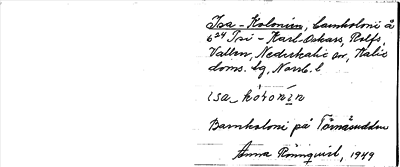 Isa-Kolonien, barnkoloni å
Tri - Karl-Oskars, Rolfs,
Vallen, Nederkalix sn, Kalix
doms. lg, Norrb. l
isa_kóronin
Barnkoloni på Törnäsudden
Anna Rönnqvist, 1949